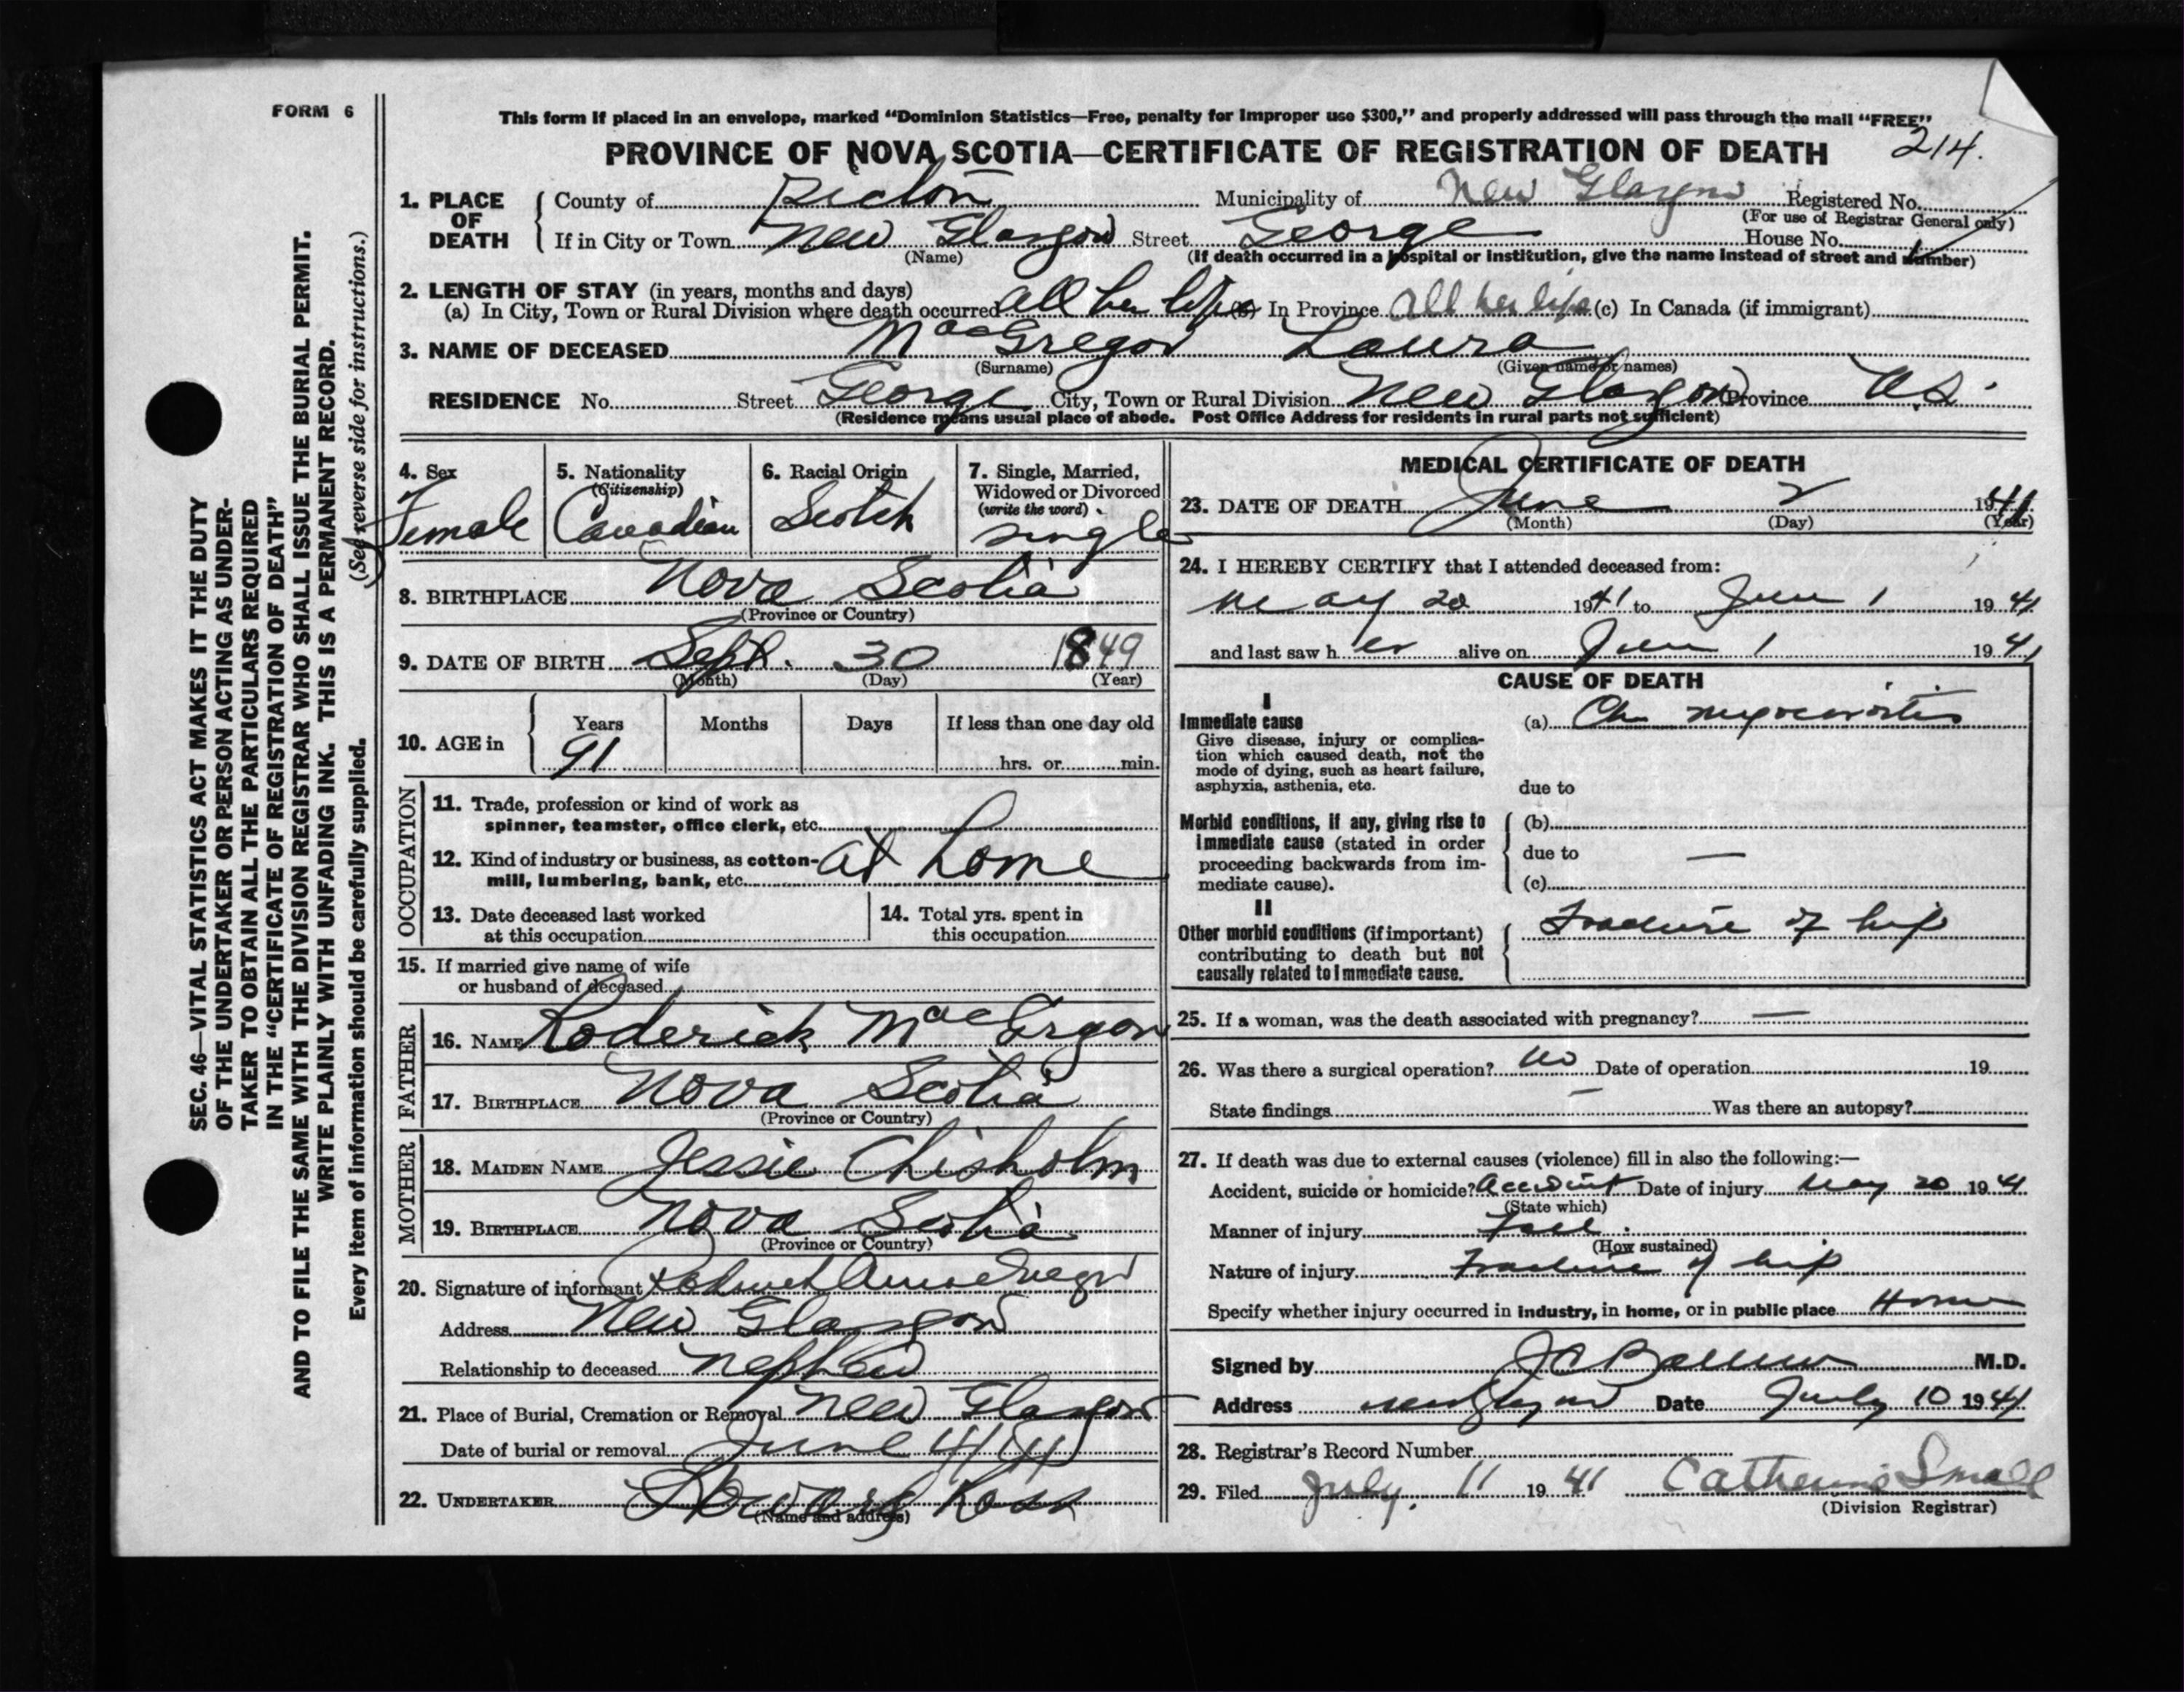 FORM 6
This form if placed in an envelope, marked “Dominion Statistics—Free, penalty for improper use $300,” and properly addressed will pass through the mail “FREE”
PROVINCE OF NOVA SCOTIA—CERTIFICATE OF REGISTRATION OF DEATH 214.
1. PLACE OF DEATH { County of Pictou Municipality of New Glasgow Registered No.
(For use of Registrar General only)
If in City or Town New Glasgow Street George House No.
(Name) (If death occurred in a hospital or institution, give the name instead of street and number)
2. LENGTH OF STAY (in years, months and days)
(a) In City, Town or Rural Division where death occurred all her life (b) In Province All her life (c) In Canada (if immigrant)
3. NAME OF DECEASED MacGregor Laura
(Surname) (Given name or names)
RESIDENCE No. Street George City, Town or Rural Division New Glasgow Province N.S.
(Residence means usual place of abode. Post Office Address for residents in rural parts not sufficient)
4. Sex Female
5. Nationality (Citizenship) Canadian
6. Racial Origin Scotch
7. Single, Married, Widowed or Divorced (write the word) single
8. BIRTHPLACE Nova Scotia
(Province or Country)
9. DATE OF BIRTH Sept. 30 1849
(Month) (Day) (Year)
10. AGE in { Years Months Days If less than one day old
91 hrs. or min.
OCCUPATION
11. Trade, profession or kind of work as
spinner, teamster, office clerk, etc.
12. Kind of industry or business, as cotton-
mill, lumbering, bank, etc. at home
13. Date deceased last worked
at this occupation
14. Total yrs. spent in
this occupation
15. If married give name of wife
or husband of deceased
FATHER
16. NAME Roderick MacGrgor
17. BIRTHPLACE Nova Scotia
(Province or Country)
MOTHER
18. MAIDEN NAME Jessie Chisholm
19. BIRTHPLACE Nova Scotia
(Province or Country)
20. Signature of informant
Address New Glasgow
Relationship to deceased nephew
21. Place of Burial, Cremation or Removal New Glasgow
Date of burial or removal June 4/41
22. UNDERTAKER Howard Ross
(Name and address)
MEDICAL CERTIFICATE OF DEATH
23. DATE OF DEATH June 2 1941
(Month) (Day) (Year)
24. I HEREBY CERTIFY that I attended deceased from:
May 20 1941 to June 1 1941
and last saw h er alive on June 1 1941
CAUSE OF DEATH
I
Immediate cause (a) Chr myocarditis
Give disease, injury or complica-
tion which caused death, not the
mode of dying, such as heart failure,
asphyxia, asthenia, etc. due to
Morbid conditions, if any, giving rise to (b)
immediate cause (stated in order
proceeding backwards from im- due to —
mediate cause). (c)
II
Other morbid conditions (if important) Fracture of hip
contributing to death but not
causally related to immediate cause.
25. If a woman, was the death associated with pregnancy? —
26. Was there a surgical operation? no Date of operation 19
State findings — Was there an autopsy?
27. If death was due to external causes (violence) fill in also the following:—
Accident, suicide or homicide? Accident Date of injury May 20 1941
(State which)
Manner of injury Fall.
(How sustained)
Nature of injury Fracture of hip
Specify whether injury occurred in industry, in home, or in public place Home
Signed by M.D.
Address New Glasgow Date July 10 1941
28. Registrar's Record Number
29. Filed July. 11 1941 Catherine Small
(Division Registrar)
SEC. 46—VITAL STATISTICS ACT MAKES IT THE DUTY
OF THE UNDERTAKER OR PERSON ACTING AS UNDER-
TAKER TO OBTAIN ALL THE PARTICULARS REQUIRED
IN THE “CERTIFICATE OF REGISTRATION OF DEATH”
AND TO FILE THE SAME WITH THE DIVISION REGISTRAR WHO SHALL ISSUE THE BURIAL PERMIT.
WRITE PLAINLY WITH UNFADING INK. THIS IS A PERMANENT RECORD.
Every item of information should be carefully supplied. (See reverse side for instructions.)